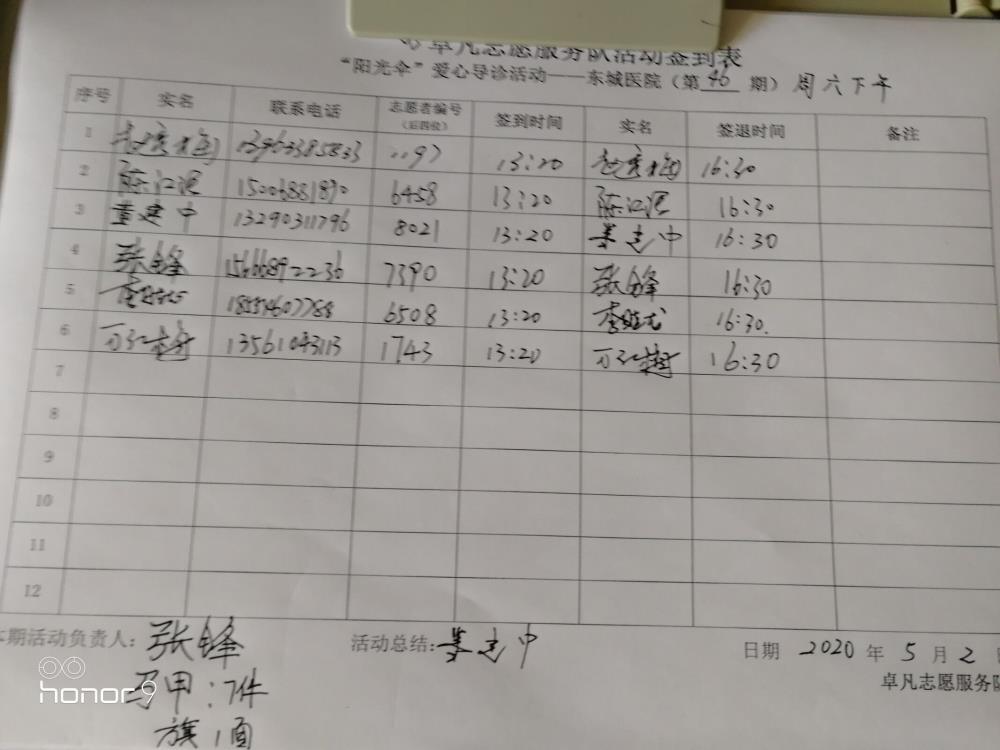 卓凡志愿服务队活动签到表
“阳光伞”爱心导诊活动——东城医院（第 46 期）周六下午
序号 实名 联系电话 志愿者编号（后四位） 签到时间 实名 签退时间 备注
1 13963385833 1197 13:20 16:30
2 陈江涢 15006881890 6458 13:20 陈江涢 16:30
3 董建中 13290311796 8021 13:20 董建中 16:30
4 张锋 15666892236 7390 13:20 张锋 16:30
5 6508 13:20 16:30.
6 13561043113 1743 13:20 16:30
7
8
9
10
11
12
本期活动负责人：张锋 活动总结：董建中 日期 2020 年 5 月 2 日
卓凡志愿服务队
马甲：7件
旗 1面
honor 9